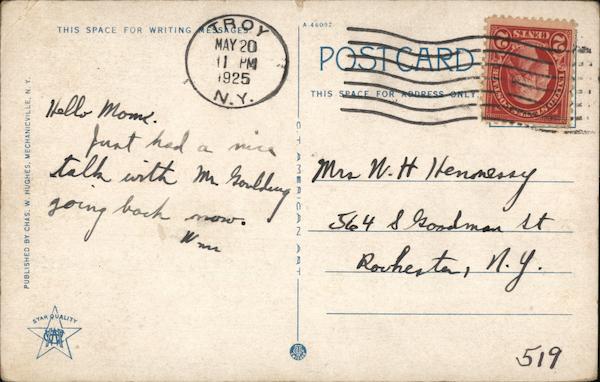 THIS SPACE FOR WRITING MESSAGES.
TROY
MAY 20
11 PM
1925
N.Y.
A-46092
POST CARD
THIS SPACE FOR ADDRESS ONLY
2 CENTS 2
Hello Mome.
Just had a nice
talk with Mr Goulding
going back now.
Wm
PUBLISHED BY CHAS. W. HUGHES, MECHANICVILLE, N. Y.
Mrs W. H Hennessy
564 S Goodman St
Rochester, N.Y.
STAR QUALITY
519